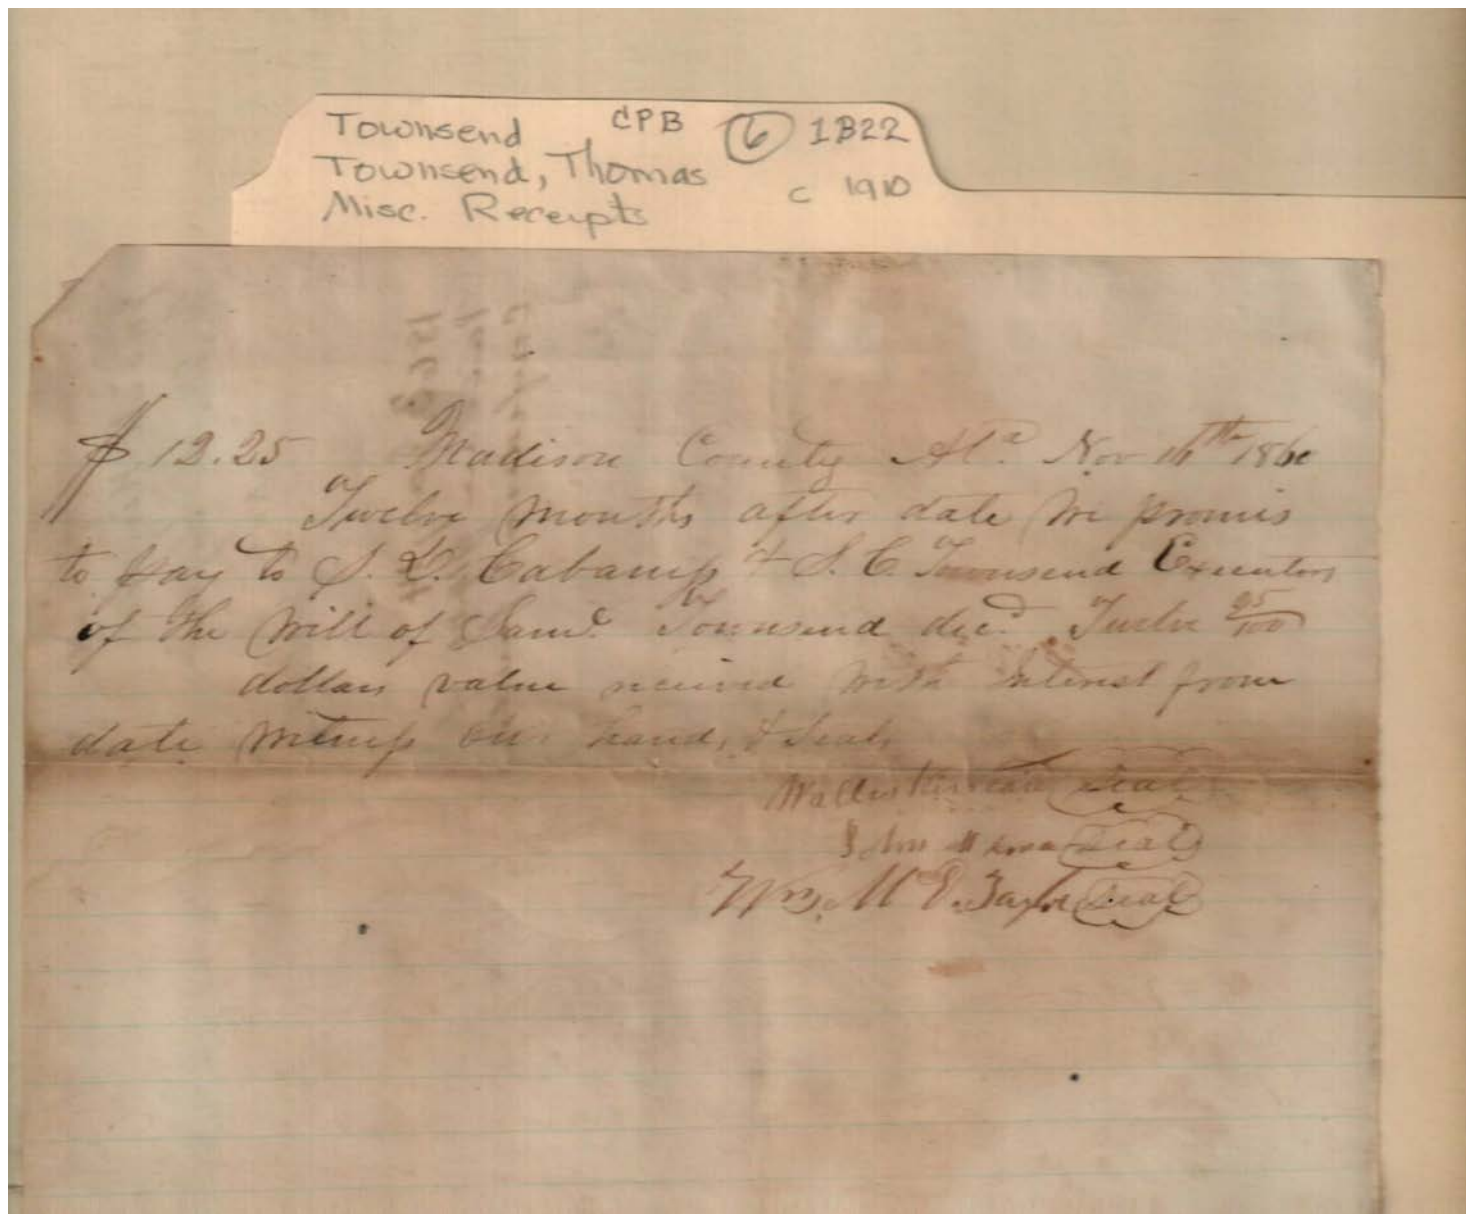 Townsend CPB 6 1B22
Townsend, Thomas c 1910
Misc. Receipts
$ 12.25 Madison County Ala Nov 16th 1860
Twelve months after date we promis
to pay to S. D. Cabaniss & S. C. Townsend Executors
of the will of Saml. Townsend decd. Twelve 25/100
dollars value received with interest from
date witness our hands & seals
Seal
John Seal
Wm. M E. Taylor Seal